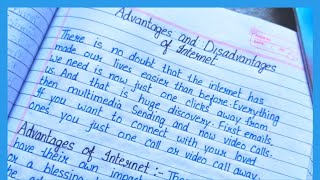 Advantages and Disadvantages
of Internet
There is no doubt that the internet has
made our lives easier than before. Everything
we need is now just one clicks away from
us. And that is huge discovery. First emails,
then multimedia Sending and now video calls.
If you want to connect with your loved
ones you just one call or video call away.
Advantages of Internet :-
have their own impact
or a blessing